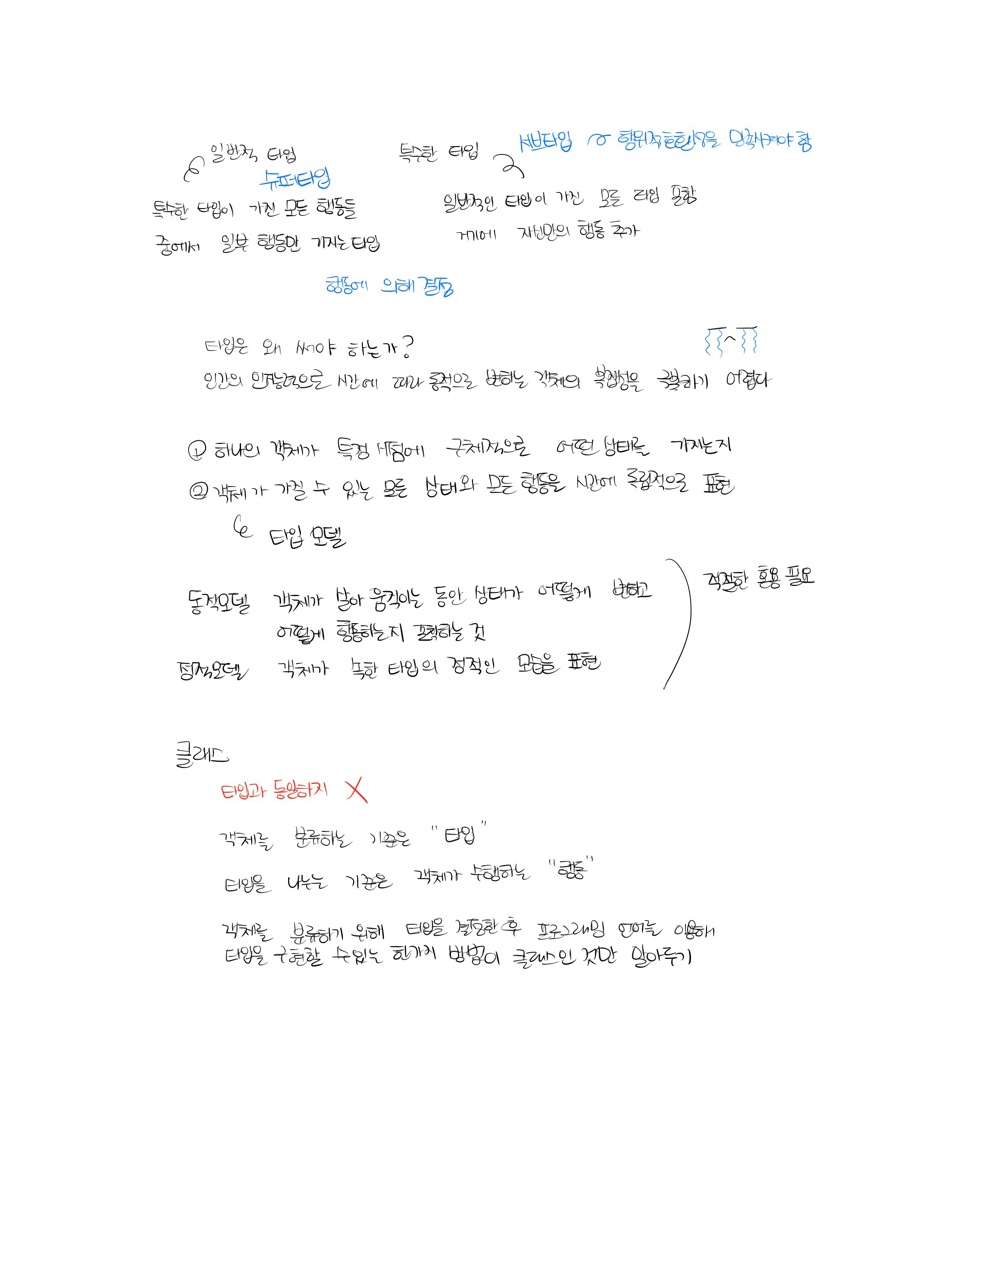 일반적 타입
슈퍼타입
특수한 타입이 가진 모든 행동들
중에서 일부 행동만 가지는 타입
특수한 타입
서브타입 행위적 호환성을 만족시켜야 함
일반적인 타입이 가진 모든 타입 포함
거기에 자신만의 행동 추가
행동에 의해 결정
타입은 왜 써야 하는가?
인간의 인지능력으로 시간에 따라 동적으로 변하는 객체의 복잡성을 극복하기 어렵다
① 하나의 객체가 특정 시점에 구체적으로 어떤 상태를 가지는지
② 객체가 가질 수 있는 모든 상태와 모든 행동을 시간에 독립적으로 표현
타입 모델
동적모델 객체가 살아 움직이는 동안 상태가 어떻게 변하고
어떻게 행동하는지 포착하는 것
정적모델 객체가 속한 타입의 정적인 모습을 표현
적절한 혼용 필요
클래스
타입과 동일하지 X
객체를 분류하는 기준은 "타입"
타입을 나누는 기준은 객체가 수행하는 "행동"
객체를 분류하기 위해 타입을 결정한 후 프로그래밍 언어를 이용해
타입을 구현할 수 있는 한가지 방법이 클래스인 것만 알아두기